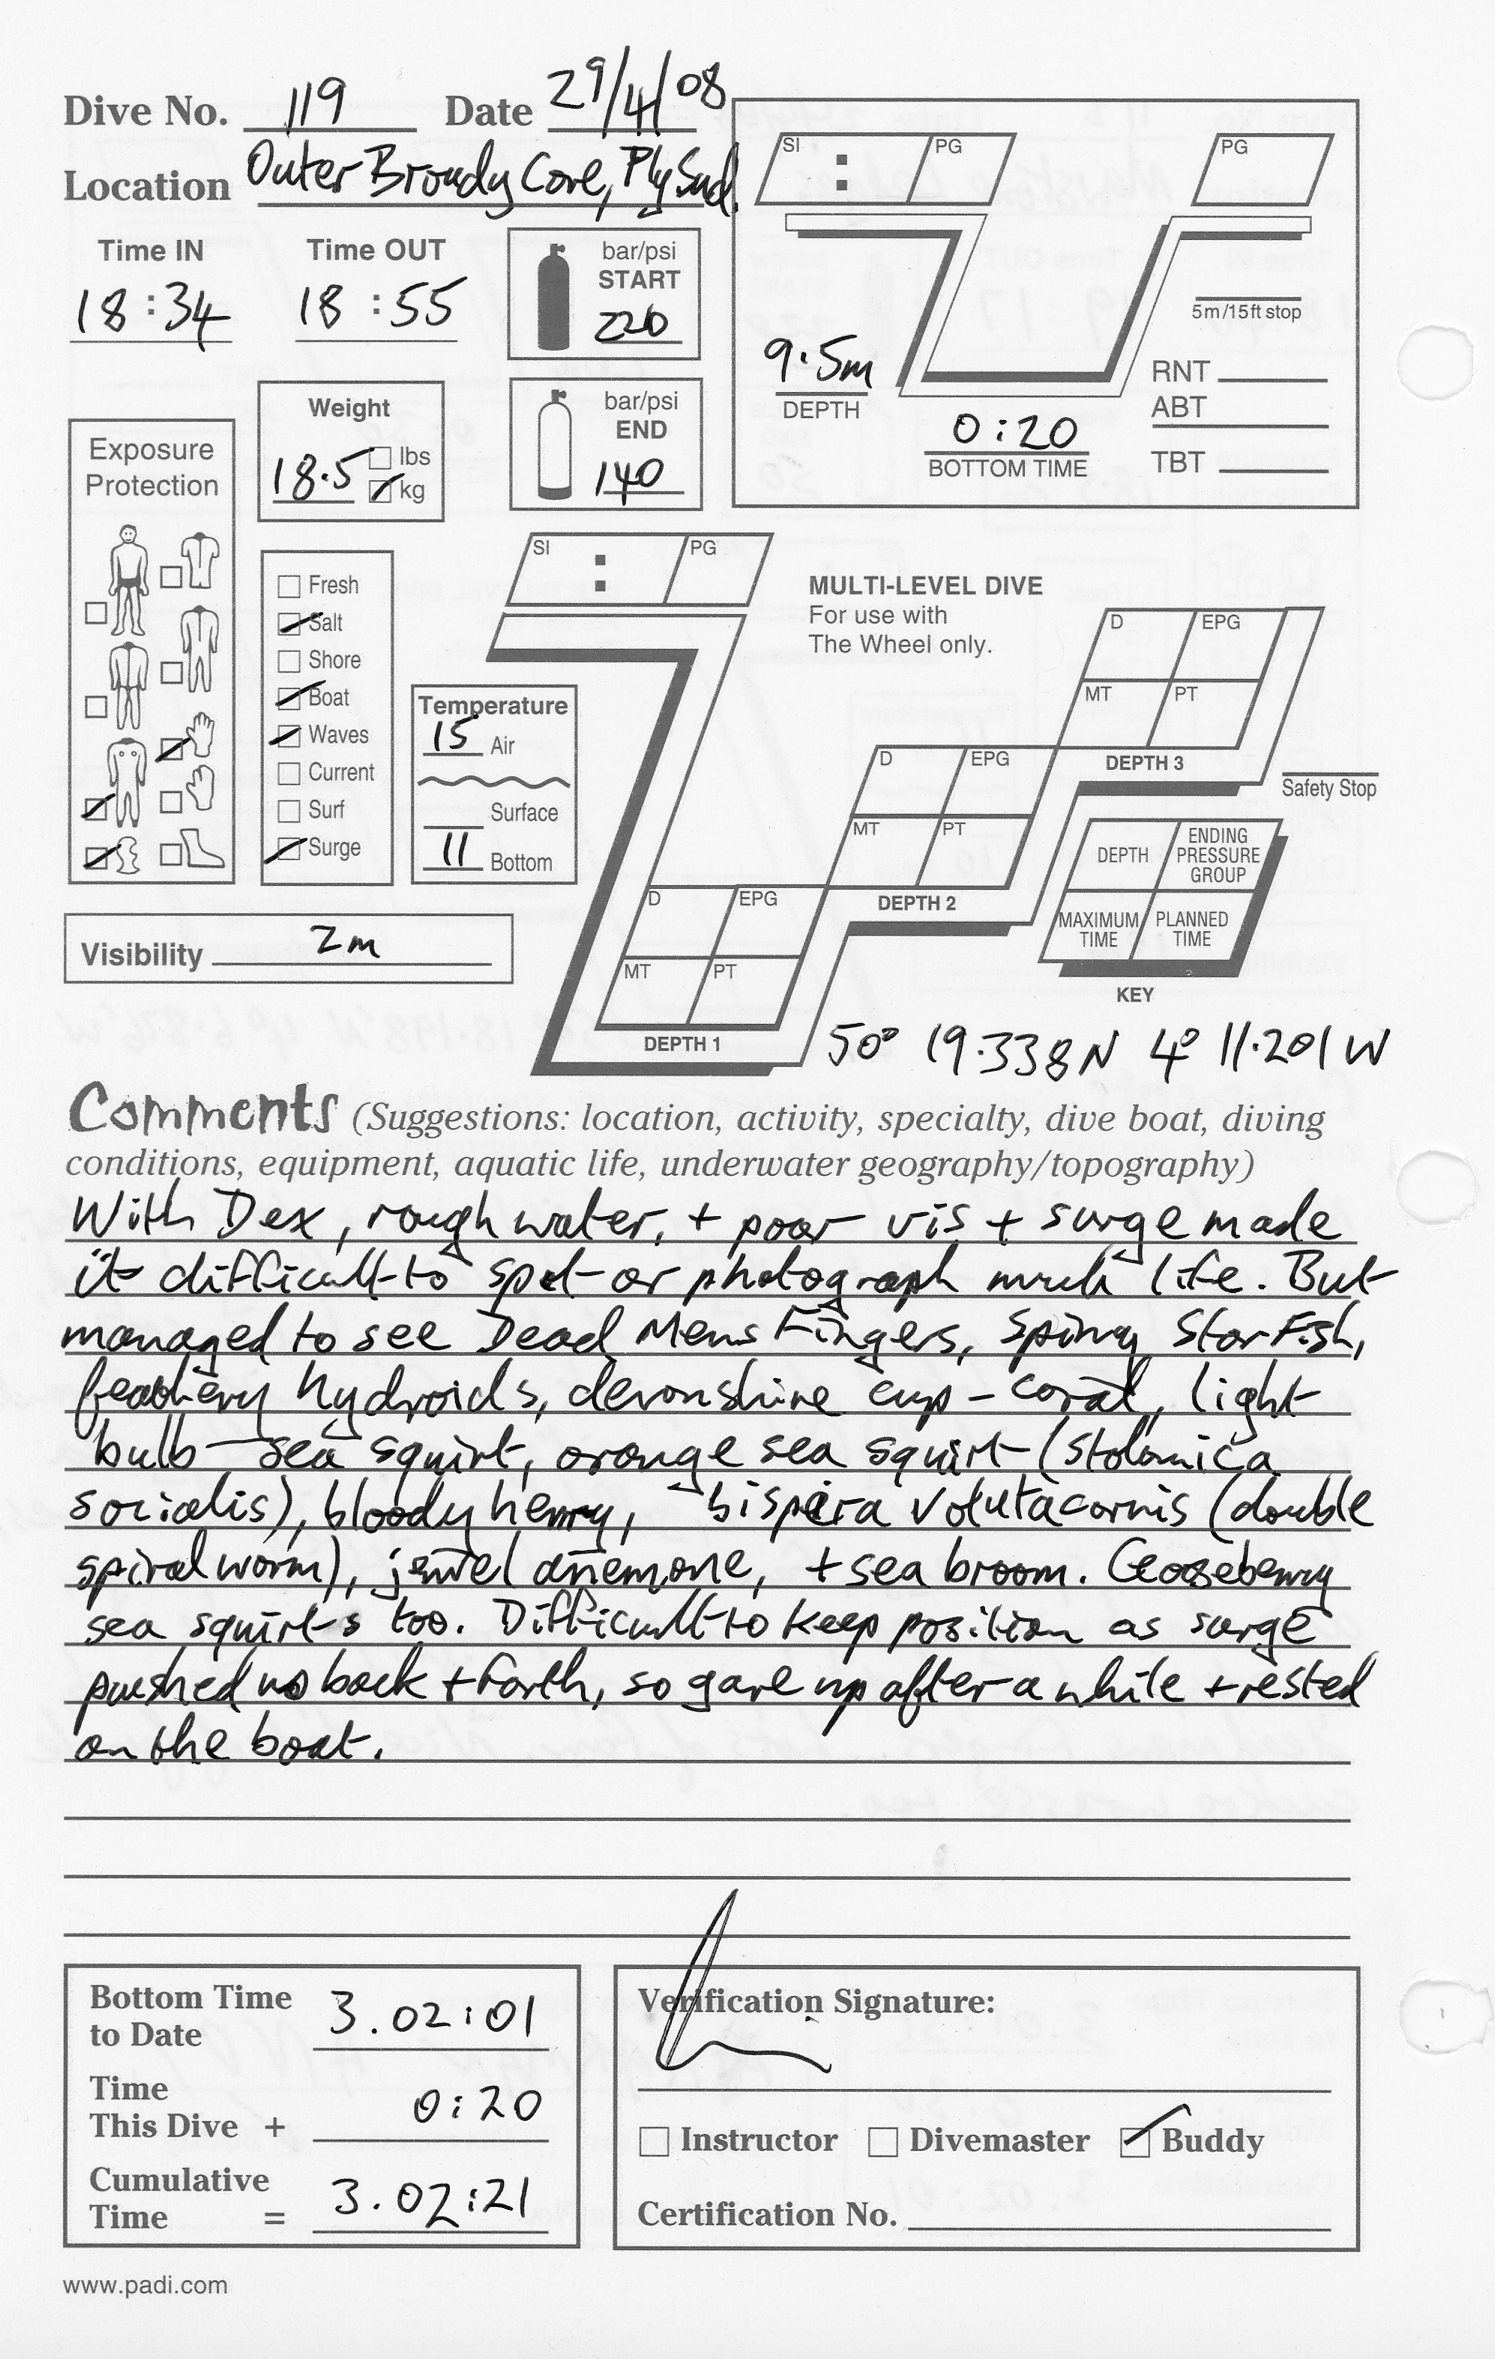 Dive No. 119 Date 29/4/08
Location Outer Broady Cove, Ply Snd.
Time IN Time OUT
18:34 18:55
bar/psi
START
220
bar/psi
END
140
Weight
18.5 lbs
kg
Exposure
Protection
Fresh
Salt
Shore
Boat
Waves
Current
Surf
Surge
Temperature
15 Air
Surface
11 Bottom
Visibility 2m
SI : PG
PG
9.5m
DEPTH
0:20
BOTTOM TIME
5m/15ft stop
RNT
ABT
TBT
SI : PG
MULTI-LEVEL DIVE
For use with
The Wheel only.
D EPG
MT PT
DEPTH 3
D EPG
MT PT
DEPTH 2
D EPG
MT PT
DEPTH 1
Safety Stop
DEPTH ENDING
PRESSURE
GROUP
MAXIMUM PLANNED
TIME TIME
KEY
50° 19.338N 4° 11.201W
Comments (Suggestions: location, activity, specialty, dive boat, diving
conditions, equipment, aquatic life, underwater geography/topography)
With Dex, rough water, + poor vis + surge made
it difficult to spot or photograph much life. But
managed to see Dead Mens Fingers, Spiny Starfish,
feathery hydroids, devonshire cup-coral, light
bulb sea squirt, orange sea squirt (Stolonica
socialis), bloody henry, bispira volutacornis (double
spiral worm), jewel anemone, + sea broom. Gooseberry
sea squirts too. Difficult to keep position as surge
pushed us back + forth, so gave up after a while + rested
on the boat.
Bottom Time
to Date 3.02:01
Time
This Dive + 0:20
Cumulative
Time = 3.02:21
Verification Signature:
Instructor Divemaster Buddy
Certification No.
www.padi.com